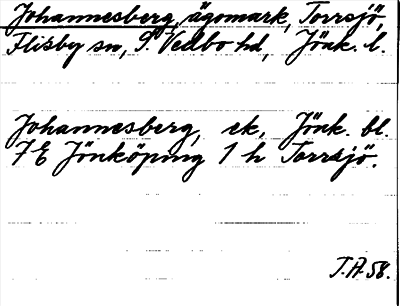 Johannesberg, ägomark, Torrsjö,
Flisby sn, S. Vedbo hd, Jönk. l.
Johannesberg, ek, Jönk. bl.
7E Jönköping 1 h Torrsjö.
T.A. 58.